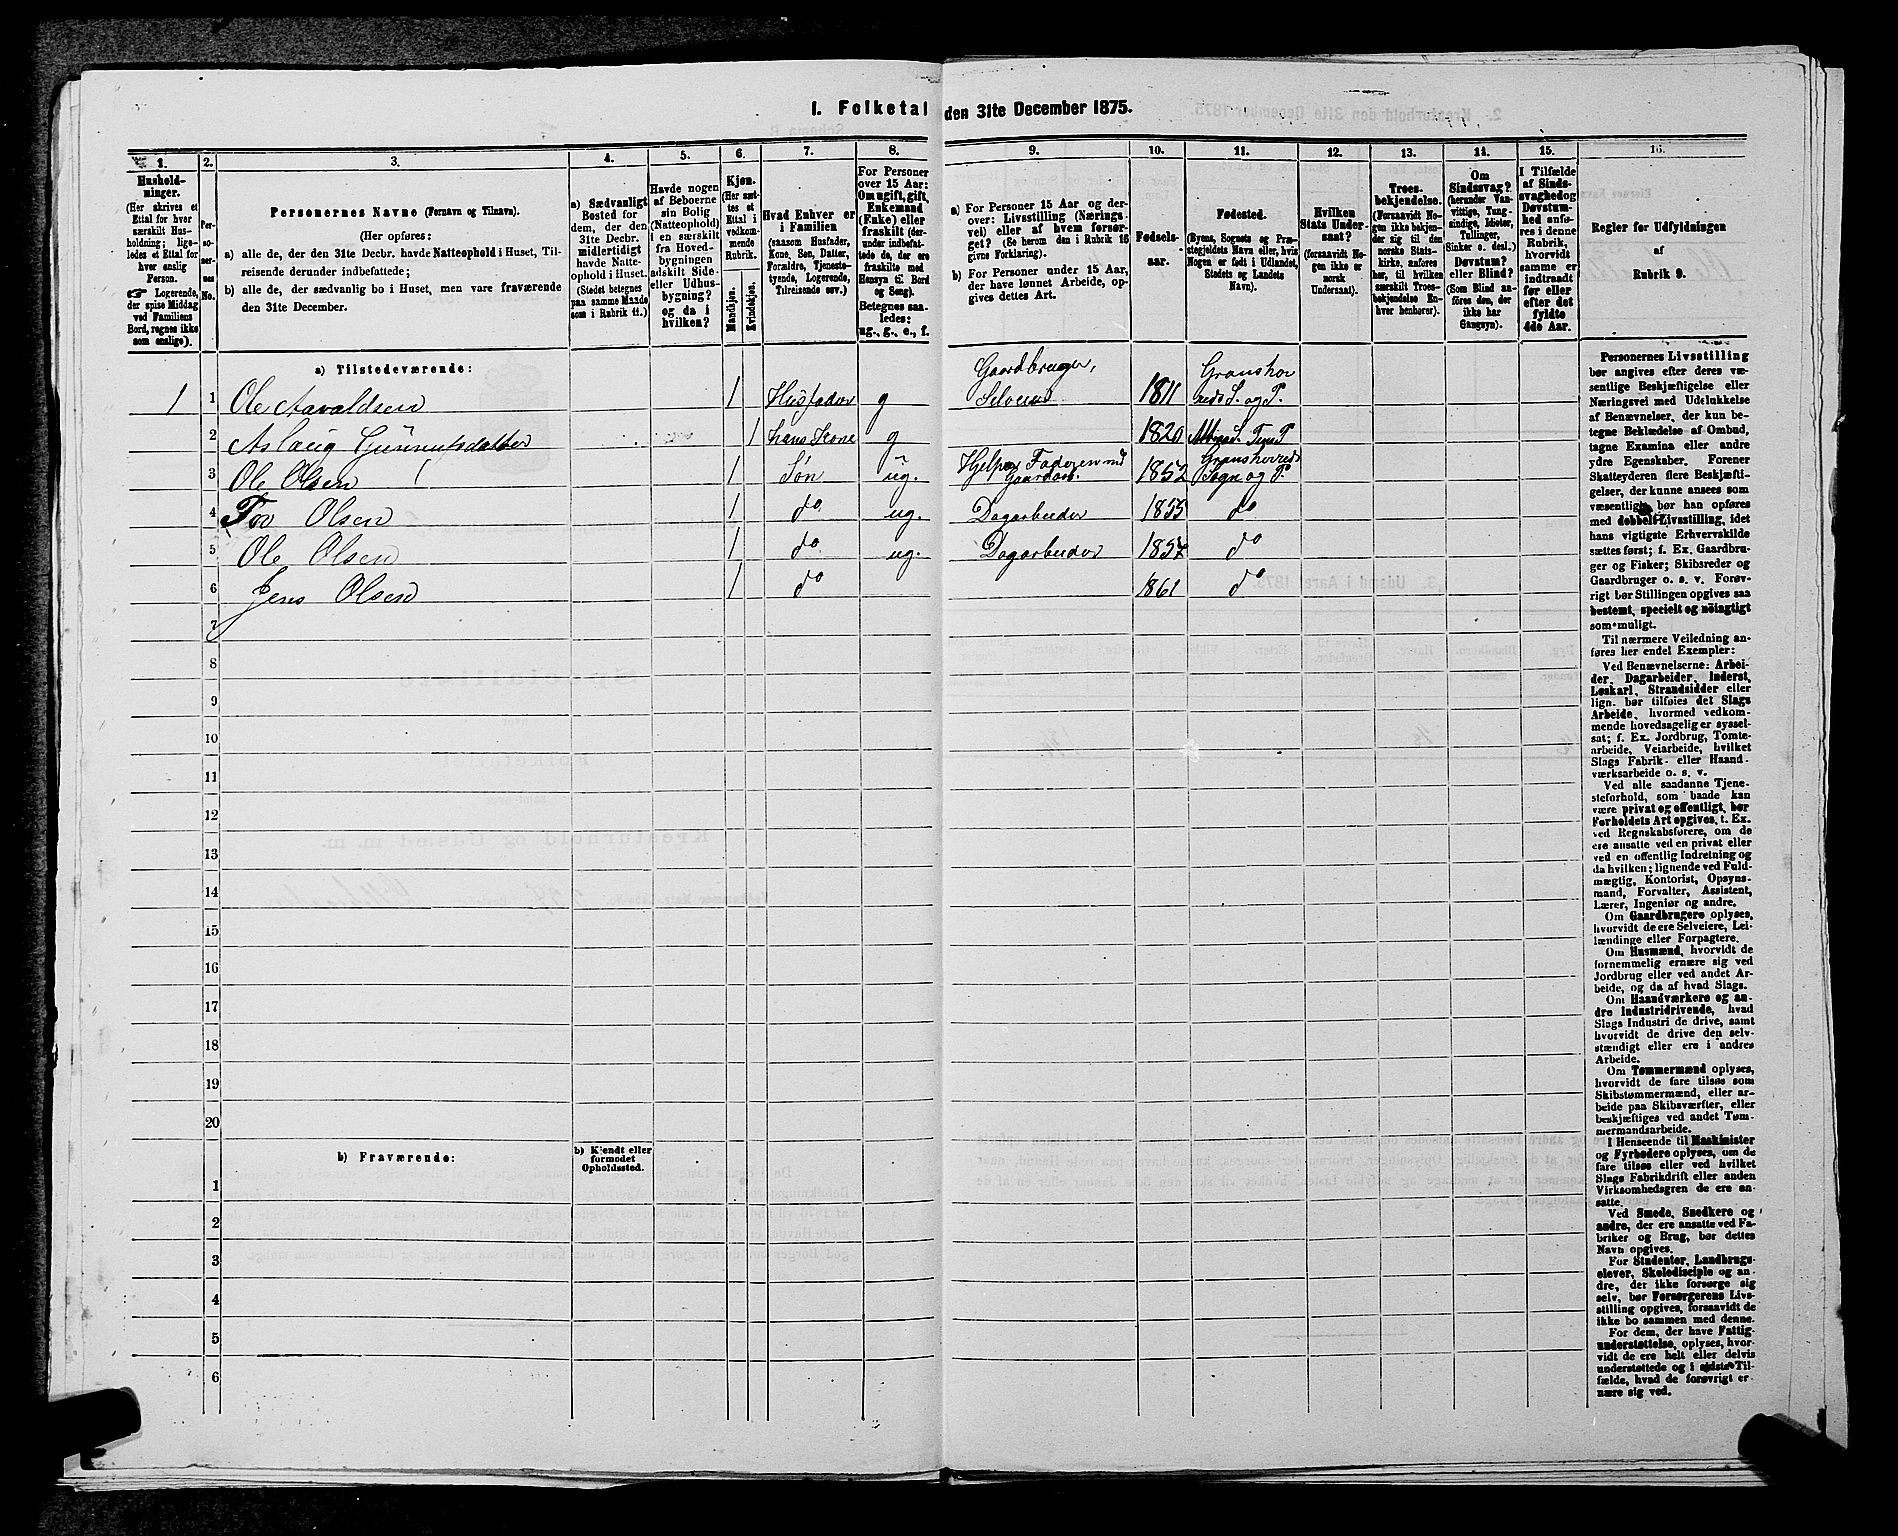 I. Folketal den 31te December 1875.
1.
Hushold-
ninger.
(Her skrives et
Ettal for hver
særskilt Hus-
holdning; lige-
ledes et Ettal for
hver enslig
Person.
Logerende,
der spise Middag
ved Familiens
Bord, regnes ikke
som enslige).
2.
Per-
so-
ner-
nes
No.
3.
Personernes Navne (Fornavn og Tilnavn).
(Her opføres:
a) alle de, der den 31te Decbr. havde Natteophold i Huset, Til-
reisende derunder indbefattede;
b) alle de, der sædvanlig bo i Huset, men vare fraværende
den 31te December.
4.
a) Sædvanligt
Bosted for
dem, der den
31te Decbr.
midlertidigt
havde Natte-
ophold i Huset.
(Stedet betegnes
paa samme Maade
som i Rubrik 11.)
5.
Havde nogen
af Beboerne
sin Bolig
(Natteophold)
i en særskilt
fra Hoved-
bygningen
adskilt Side-
eller Udhus-
bygning?
og da i
hvilken?
6.
Kjøn.
(Her sæt-
tes et
Ettal i
vedkom-
mende
Rubrik.
Mandkjøn.
Kvindekjøn.
7.
Hvad Enhver er
i Familien
(saasom Husfader,
Kone, Søn, Datter,
Forældre, Tjeneste-
tyende, Logerende,
Tilreisende osv.)
8.
For Personer
over 15 Aar:
Om ugift, gift,
Enkemand
(Enke) eller
fraskilt (der-
under indbefat-
tede de, der ere
fraskilte med
Hensyn til Bord
og Seng).
Betegnes saa-
ledes:
ug., g., e., f.
9.
a) For Personer 15 Aar og der-
over: Livsstilling (Nærings-
vei) eller af hvem forsør-
get? (Se herom den i Rubrik 16
givne Forklaring).
b) For Personer under 15 Aar,
der have lønnet Arbeide, op-
gives dettes Art.
10.
Fødsels-
aar.
11.
Fødested.
(Byens, Sognets og Præ-
stegjeldets Navn eller, hvis
Nogen er født i Udlandet,
Stedets og Landets
Navn).
12.
Hvilken
Stats Under-
saat?
(forsaavidt No-
gen ikke er
norsk
Undersaat).
13.
Troes-
bekjendelse.
(Forsaavidt No-
gen ikke bekjen-
der sig til den
norske Stats-
kirke, anføres
her, til hvilken
særskilt Troes-
bekjendelse En-
hver henhører).
14.
Om
Sindssvag?
(herunder Van-
vittige, Tung-
sindige, Idioter,
Tullinger,
Sinker o. desl.)
Døvstum?
eller Blind?
(Som Blind an-
føres den, der
ikke har
Gangsyn).
15.
I Tilfælde
af Sinds-
svaghed og
Døvstum-
hed anfø-
res i denne
Rubrik,
hvorvidt
samme er
indtraadt
før eller
efter det
fyldte
4de Aar.
16.
Regler for Udfyldningen
af
Rubrik 9.
a) Tilstedeværende:
1 1 Ole Aavaldsen 1 Husfader g Gaardbruger, Selveier 1811 Granshereds S. og P.
2 Aslaug Gunnulfsdatter 1 hans Kone g 1820 S. P
3 Ole Olsen 1 Søn ug. Hjelper Faderen med Gaardarb. 1852 Gransherreds Sogn og P.
4 Tov Olsen 1 do ug. Dagarbeider 1855 do
5 Ole Olsen 1 do ug. Dagarbeider 1857 do
6 Jens Olsen 1 do 1861 do
7
8
9
10
11
12
13
14
15
16
17
18
19
20
b) Fraværende:
b) Kjendt eller
formodet
Opholdssted.
1
2
3
4
5
6
Personernes Livsstilling
bør angives efter deres væ-
sentlige Beskjæftigelse eller
Næringsvei med Udelukkelse
af Benævnelser, der kun be-
tegne Beklædelse af Ombud,
tagne Examina eller andre
ydre Egenskaber. Forener
Skatteyderen flere Beskjæfti-
gelser, der kunne ansees som
væsentlige, bør han opføres
med dobbelt Livsstilling, idet
hans vigtigste Erhvervskilde
sættes først; f. Ex. Gaardbru-
ger og Fisker; Skibsreder og
Gaardbruger o. s. v. Forøv-
rigt bør Stillingen opgives saa
bestemt, specielt og nøiagtigt
som muligt.
Til nærmere Veiledning an-
føres her endel Exempler:
Ved Benævnelserne: Arbei-
der, Dagarbeider, Inderst,
Løskarl, Strandsidder eller
lign. bør tilføies det Slags
Arbeide, hvormed vedkom-
mende hovedsagelig er syssel-
sat; f. Ex. Jordbrug, Tomte-
arbeide, Veiarbeide, hvilket
Slags Fabrik- eller Haand-
værksarbeide o. s. v.
Ved alle saadanne Tjene-
steforhold, som baade kan
være privat og offentligt, bør
Forholdets Art opgives, t. Ex.
ved Regnskabsførere, om de
ere ansatte ved en privat eller
ved en offentlig Indretning og
da hvilken; lignende ved Fuld-
mægtig, Kontorist, Opsyns-
mand, Forvalter, Assistent,
Lærer, Ingeniør og andre.
Om Gaardbrugere oplyses,
hvorvidt de ere Selveiere, Lei-
lændinge eller Forpagtere.
Om Husmænd, hvorvidt de
fornemmelig ernære sig ved
Jordbrug eller ved andet Ar-
beide, og da af hvad Slags.
Om Haandværkere og an-
dre industridrivende, hvad
Slags Industri de drive, samt
hvorvidt de drive den selv-
stændigt eller ere i andres
Arbeide.
Om Tømmermænd oplyses,
hvorvidt de fare tilsøs som
Skibstømmermænd, eller ar-
beide paa Skibsværfter, eller
beskjæftiges ved andet Tøm-
mermandsarbeide.
I Henseende til Maskinister
og Fyrbødere oplyses, om de
fare tilsøs eller ved hvilket
Slags Fabrikdrift eller anden
Virksomhedsgren de ere an-
satte.
Ved Smede, Snedkere og
andre, der ere ansatte ved Fa-
briker og Brug, bør dettes
Navn opgives.
For Studenter, Landbrugs-
elever, Skoledisciple og an-
dre, der ikke forsørge sig
selv, bør Forsørgerens Livs-
stilling opgives, forsaavidt de
ikke bo sammen med denne.
For dem, der have Fattig-
understøttelse, oplyses, hvor-
vidt de ere helt eller delvis
understøttede og i sidste Til-
fælde, hvad de forøvrigt er-
nære sig ved.